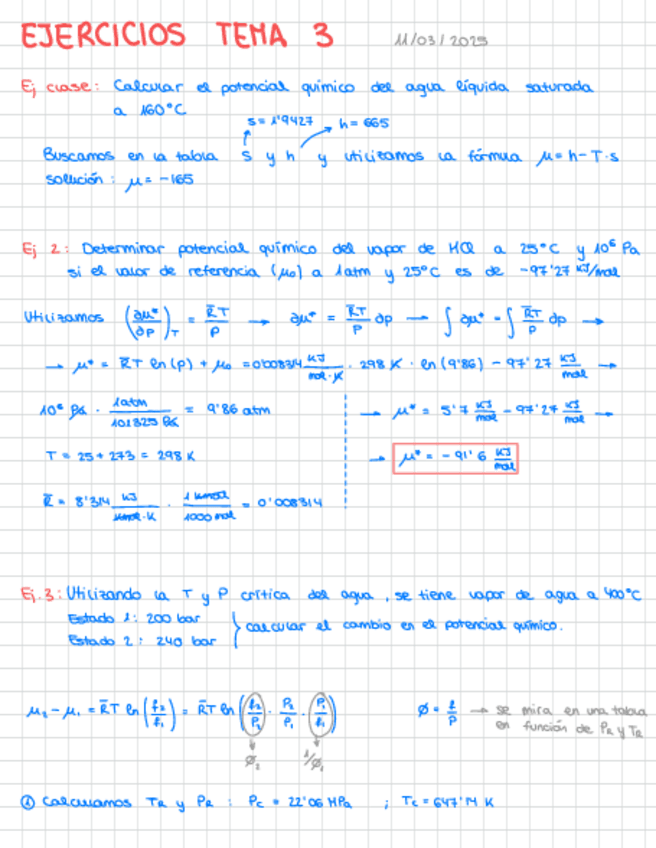 EJERCICIOS TEMA 3 11/03/2025
Ej clase: Calcular el potencial químico del agua líquida saturada
a 160°C
s = 1'9427 h = 665
Buscamos en la tabla s y h y utilizamos la fórmula μ = h - T·s
solución: μ = -165
Ej 2: Determinar potencial químico del vapor de HCl a 25°C y 10⁶ Pa
si el valor de referencia (μ₀) a 1atm y 25°C es de -97'27 KJ/mol
Utilizamos (∂μ*/∂P)_T = R̄T/P → ∂μ* = R̄T/P ∂p → ∫ ∂μ* = ∫ R̄T/P ∂p →
→ μ* = R̄T ln(p) + μ₀ = 0'008314 KJ/mol·K · 298 K · ln(9'86) - 97'27 KJ/mol →
10⁶ Pa · 1atm/101325 Pa = 9'86 atm → μ* = 5'7 KJ/mol - 97'27 KJ/mol →
T = 25 + 273 = 298 K → μ* = -91'6 KJ/mol
R̄ = 8'314 KJ/Kmol·K · 1 Kmol/1000 mol = 0'008314
Ej.3: Utilizando la T y P crítica del agua, se tiene vapor de agua a 400°C
Estado 1: 200 bar
Estado 2: 240 bar } calcular el cambio en el potencial químico.
μ₂ - μ₁ = R̄T ln(f₂/f₁) = R̄T ln(f₂/P₂ · P₂/P₁ · P₁/f₁) ø = f/P → se mira en una tabla
en función de PR y TR
ø₂ 1/ø₁
① Calculamos TR y PR : Pc = 22'06 MPa ; Tc = 647'14 K